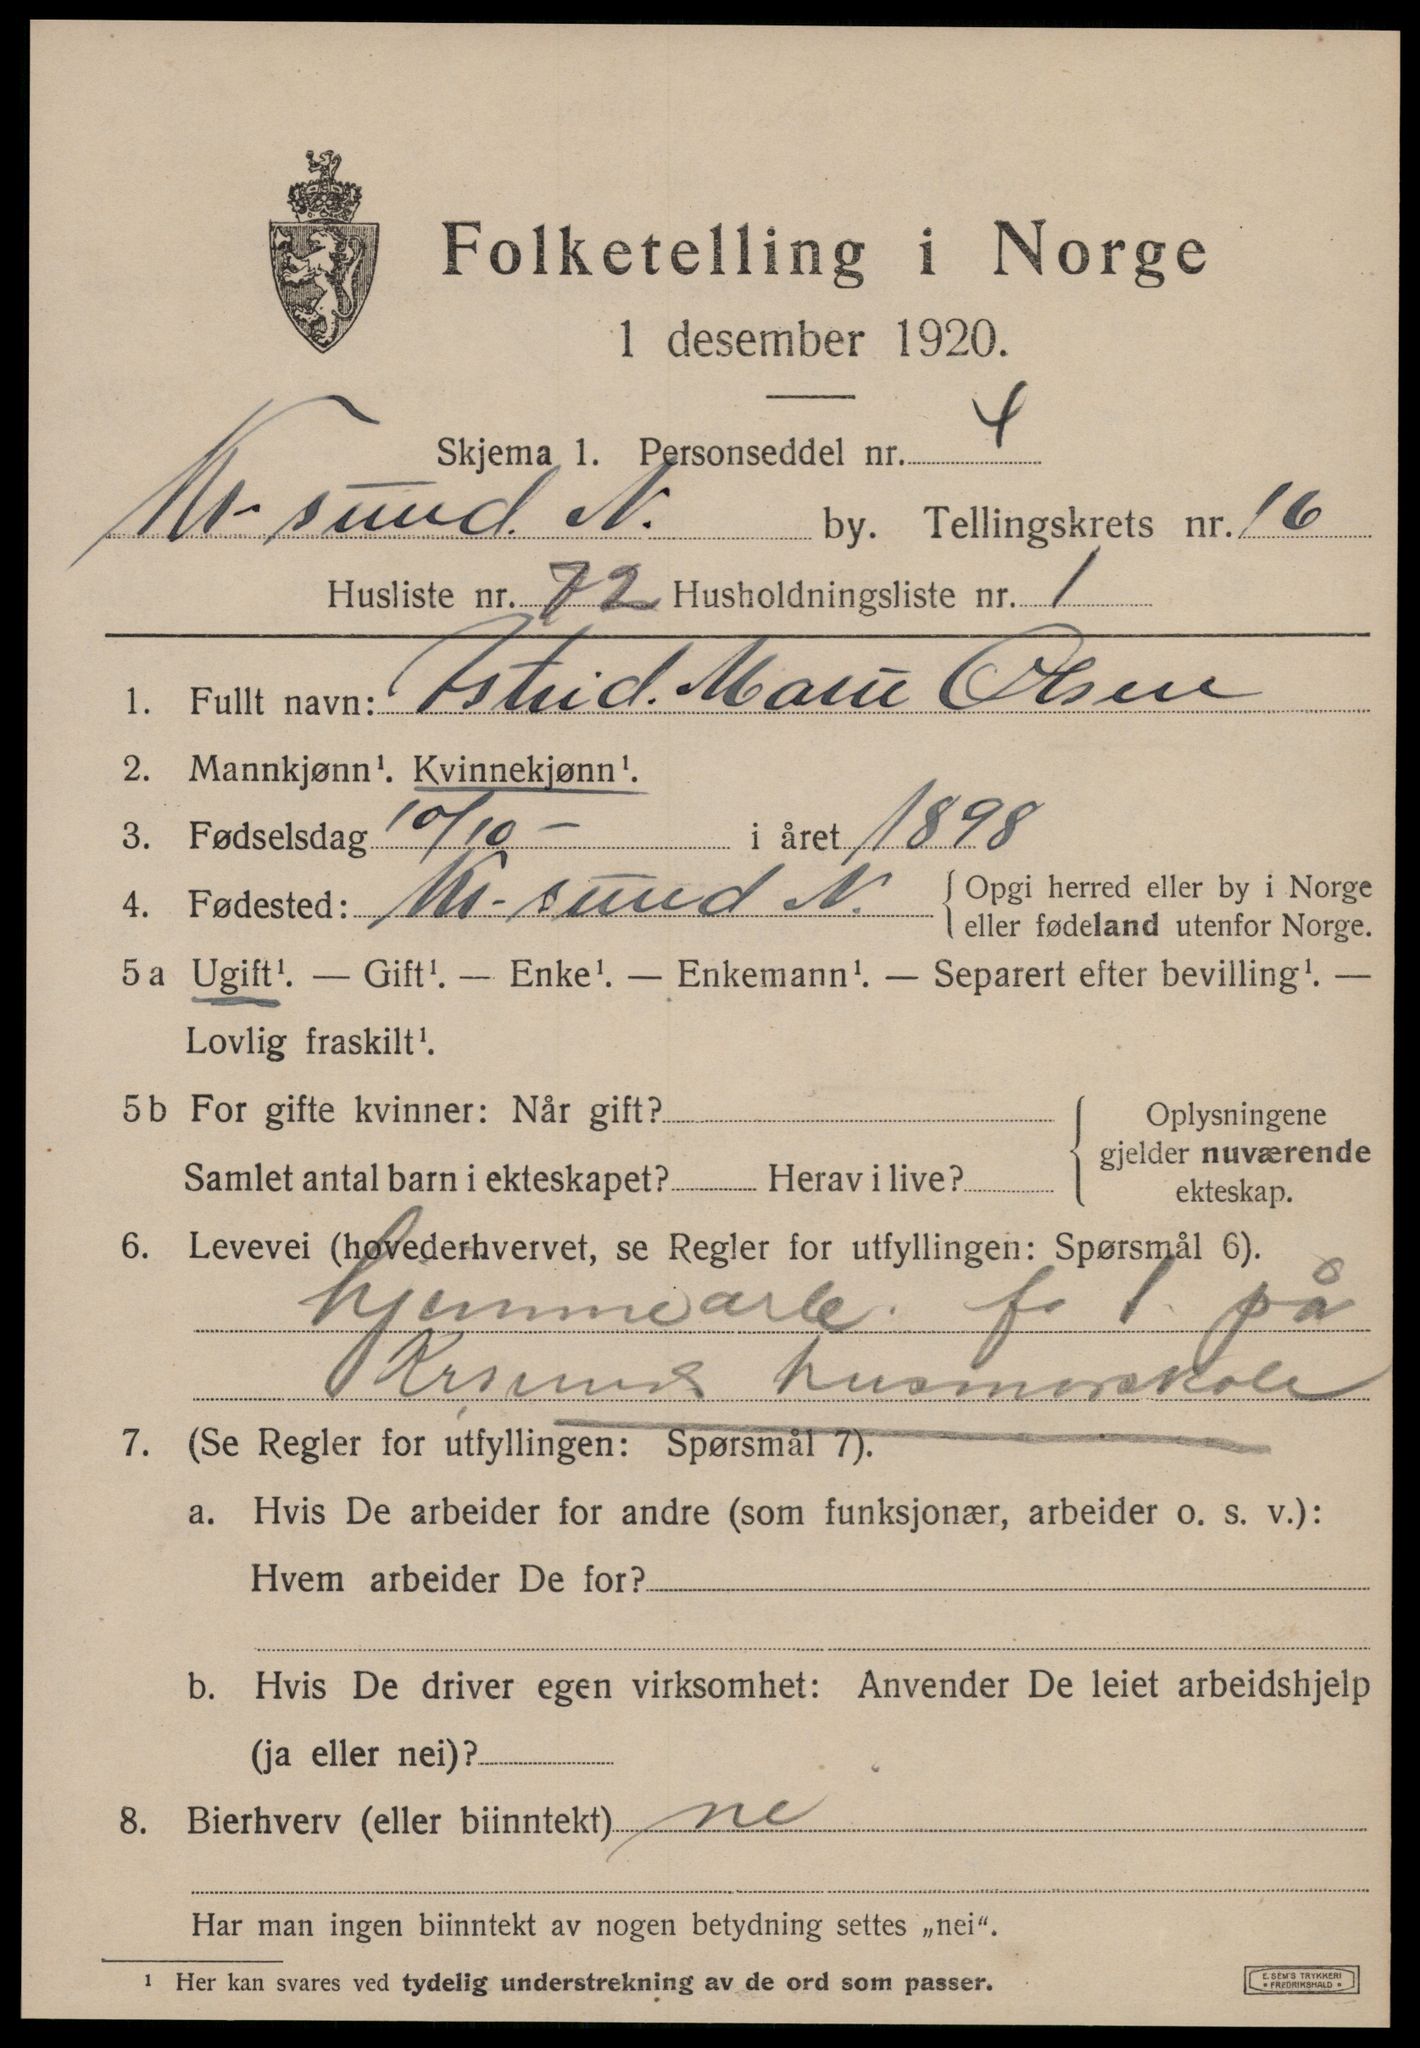 Folketelling i Norge
1 desember 1920.
Skjema 1. Personseddel nr. 4
Kr-sund. N. by. Tellingskrets nr. 16
Husliste nr. 72 Husholdningsliste nr. 1
1. Fullt navn: Astrid. Marie Olsen
2. Mannkjønn¹. Kvinnekjønn¹.
3. Fødselsdag 10/10- i året 1898
4. Fødested: Kr-sund N. { Opgi herred eller by i Norge
eller fødeland utenfor Norge.
5 a Ugift¹. — Gift¹. — Enke¹. — Enkemann¹. — Separert efter bevilling¹. —
Lovlig fraskilt¹.
5 b For gifte kvinner: Når gift?
Samlet antal barn i ekteskapet? Herav i live?
Oplysningene
gjelder nuværende
ekteskap.
6. Levevei (hovederhvervet, se Regler for utfyllingen: Spørsmål 6).
hjemmearb. f 1. på
Krsunds husmorskole
7. (Se Regler for utfyllingen: Spørsmål 7).
a. Hvis De arbeider for andre (som funksjonær, arbeider o. s. v.):
Hvem arbeider De for?
b. Hvis De driver egen virksomhet: Anvender De leiet arbeidshjelp
(ja eller nei)?
8. Bierhverv (eller biinntekt) nei
Har man ingen biinntekt av nogen betydning settes „nei“.
¹ Her kan svares ved tydelig understrekning av de ord som passer.
E. SEM'S TRYKKERI
• FREDRIKSHALD •